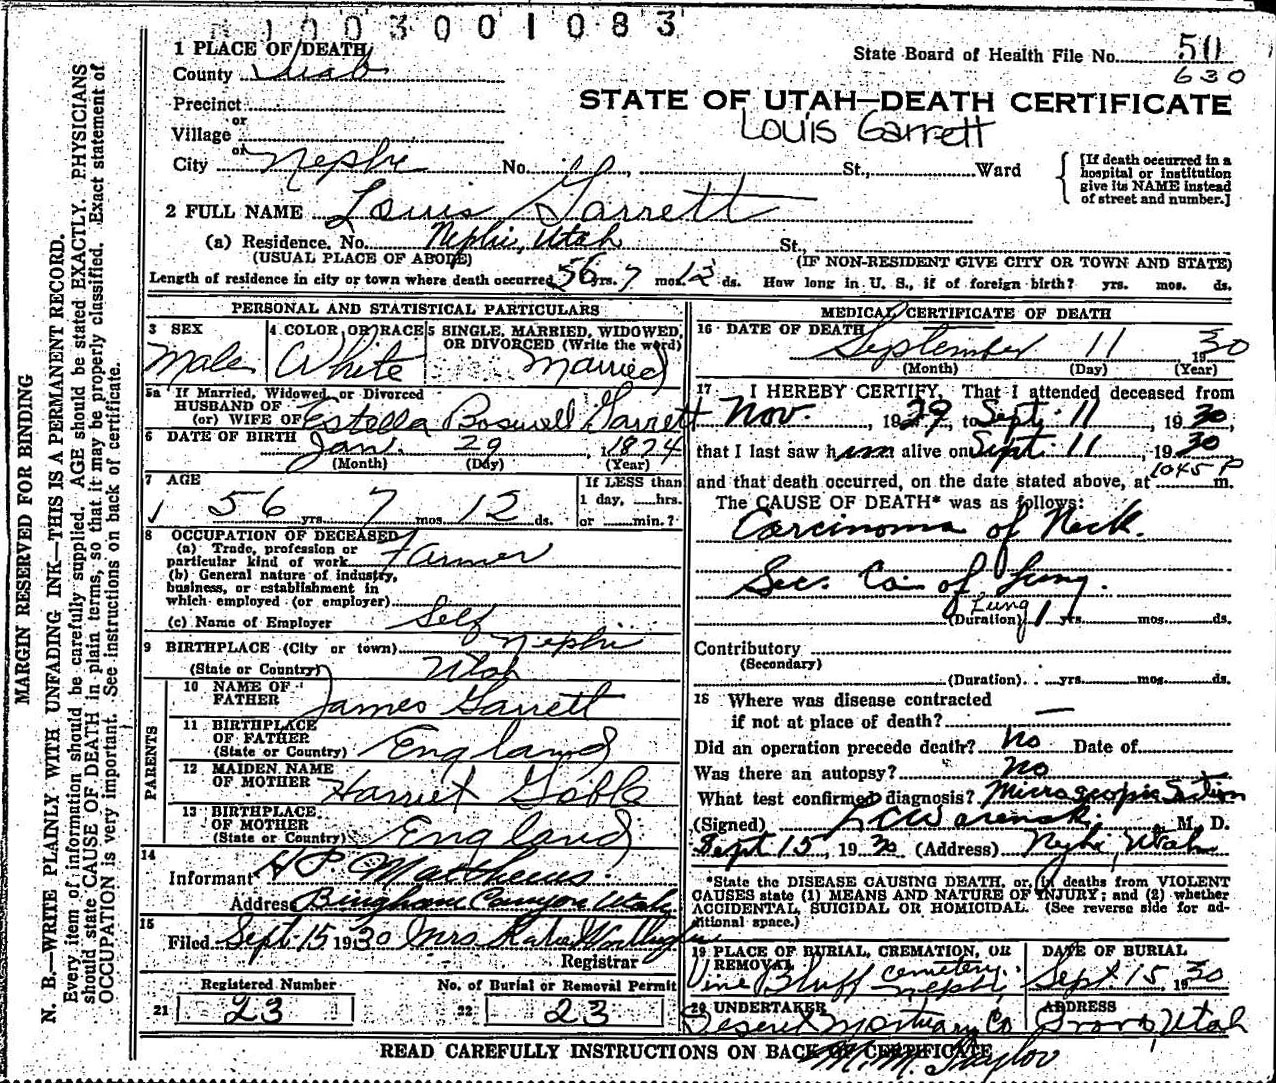 1003001083
1 PLACE OF DEATH
State Board of Health File No. 50
County Juab
630
Precinct
STATE OF UTAH—DEATH CERTIFICATE
or
Village
Louis Garrett
or
City Nephi No. St., Ward
[If death occurred in a
hospital or institution
give its NAME instead
of street and number.]
2 FULL NAME Louis Garrett
(a) Residence. No. Nephi, Utah St.,
(USUAL PLACE OF ABODE) (IF NON-RESIDENT GIVE CITY OR TOWN AND STATE)
Length of residence in city or town where death occurred 56 yrs. 7 mos. 12 ds. How long in U. S., if of foreign birth? yrs. mos. ds.
PERSONAL AND STATISTICAL PARTICULARS
3 SEX
Male
4 COLOR OR RACE
White
5 SINGLE, MARRIED, WIDOWED,
OR DIVORCED (Write the word)
Married
5a If Married, Widowed, or Divorced
HUSBAND OF
(or) WIFE OF Estella Boswell Garrett
6 DATE OF BIRTH Jan. 29, 1874
(Month) (Day) (Year)
7 AGE
56 yrs. 7 mos. 12 ds.
If LESS than
1 day, hrs.
or min.?
8 OCCUPATION OF DECEASED
(a) Trade, profession or
particular kind of work Farmer
(b) General nature of industry,
business, or establishment in
which employed (or employer)
(c) Name of Employer Self
9 BIRTHPLACE (City or town) Nephi
(State or Country) Utah
PARENTS
10 NAME OF
FATHER James Garrett
11 BIRTHPLACE
OF FATHER
(State or Country) England
12 MAIDEN NAME
OF MOTHER Harriet Goble
13 BIRTHPLACE
OF MOTHER
(State or Country) England
14
Informant H P. Matthews.
Address Bingham Canyon Utah
15
Filed Sept. 15 1930 Mrs
Registrar
Registered Number
21 23
No. of Burial or Removal Permit
22 23
MEDICAL CERTIFICATE OF DEATH
16 DATE OF DEATH
September 11 1930
(Month) (Day) (Year)
17 I HEREBY CERTIFY, That I attended deceased from
Nov. , 1929, to Sept. 11 , 1930,
that I last saw him alive on Sept. 11 , 1930
and that death occurred, on the date stated above, at 1045 P m.
The CAUSE OF DEATH* was as follows:
Carcinoma of Neck.
Sec. Ca. of Lung.
Lung
(Duration) 1 yrs. mos. ds.
Contributory
(Secondary)
(Duration) yrs. mos. ds.
18 Where was disease contracted
if not at place of death? —
Did an operation precede death? No Date of
Was there an autopsy? No
What test confirmed diagnosis? Microscopic Section
(Signed) M. D.
Sept 15, 1930 (Address) Nephi, Utah
*State the DISEASE CAUSING DEATH, or, in deaths from VIOLENT
CAUSES state (1) MEANS AND NATURE OF INJURY; and (2) whether
ACCIDENTAL, SUICIDAL OR HOMICIDAL. (See reverse side for ad-
ditional space.)
19 PLACE OF BURIAL, CREMATION, OR
REMOVAL
Vine Bluff cemetery.
Nephi
DATE OF BURIAL
Sept 15, 1930
20 UNDERTAKER
Deseret Mortuary Co
ADDRESS
Provo, Utah
M. M. Taylor
READ CAREFULLY INSTRUCTIONS ON BACK OF CERTIFICATE
MARGIN RESERVED FOR BINDING
N. B.—WRITE PLAINLY WITH UNFADING INK—THIS IS A PERMANENT RECORD.
Every item of information should be carefully supplied. AGE should be stated EXACTLY. PHYSICIANS
should state CAUSE OF DEATH in plain terms, so that it may be properly classified. Exact statement of
OCCUPATION is very important. See instructions on back of certificate.